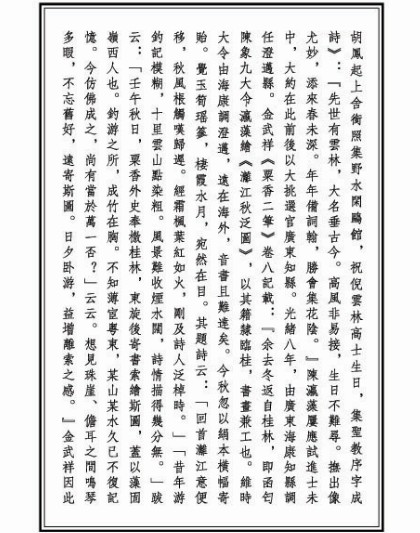 胡鳳起上舍衡照集野水閑鷗館，祝倪雲林高士生日，集聖教序字成
詩》：「先世有雲林，大名垂古今。高風非易接，生日不難尋。撫出像
尤妙，添來春未深。年年備詞翰，勝會集花陰。』陳瀛藻屢應試進士未
中，大約在此前後以大挑選官廣東知縣。光緒八年，由廣東海康知縣調
任澄邁縣。金武祥《粟香二筆》卷八記載：『余去冬返自桂林，即函匄
陳象九大令瀛藻繪《灕江秋泛圖》，以其籍隸臨桂，書畫兼工也。維時
大令由海康調澄邁，遠在海外，音書且難達矣。今秋忽以絹本橫幅寄
貽。覺玉筍瑤篸，棲霞水月，宛然在目。其題詩云：「回首灕江意便
移，秋風悵觸嘆歸遲。經霜楓葉紅如火，剛及詩人泛棹時。」「昔年游
釣記模糊，十里雲山點染粗。風景難收煙水闊，詩情描得幾分無。」跋
云：「壬午秋日，粟香外史奉檄桂林，東旋後寄書索繪斯圖，蓋以藻固
嶺西人也。釣游之所，成竹在胸。不知薄宦粵東，某山某水久已不復記
憶。今仿佛成之，尚有當於萬一否？」云云。想見珠崖、儋耳之間鳴琴
多暇，不忘舊好，遠寄斯圖。日夕卧游，益增離索之感。』金武祥因此